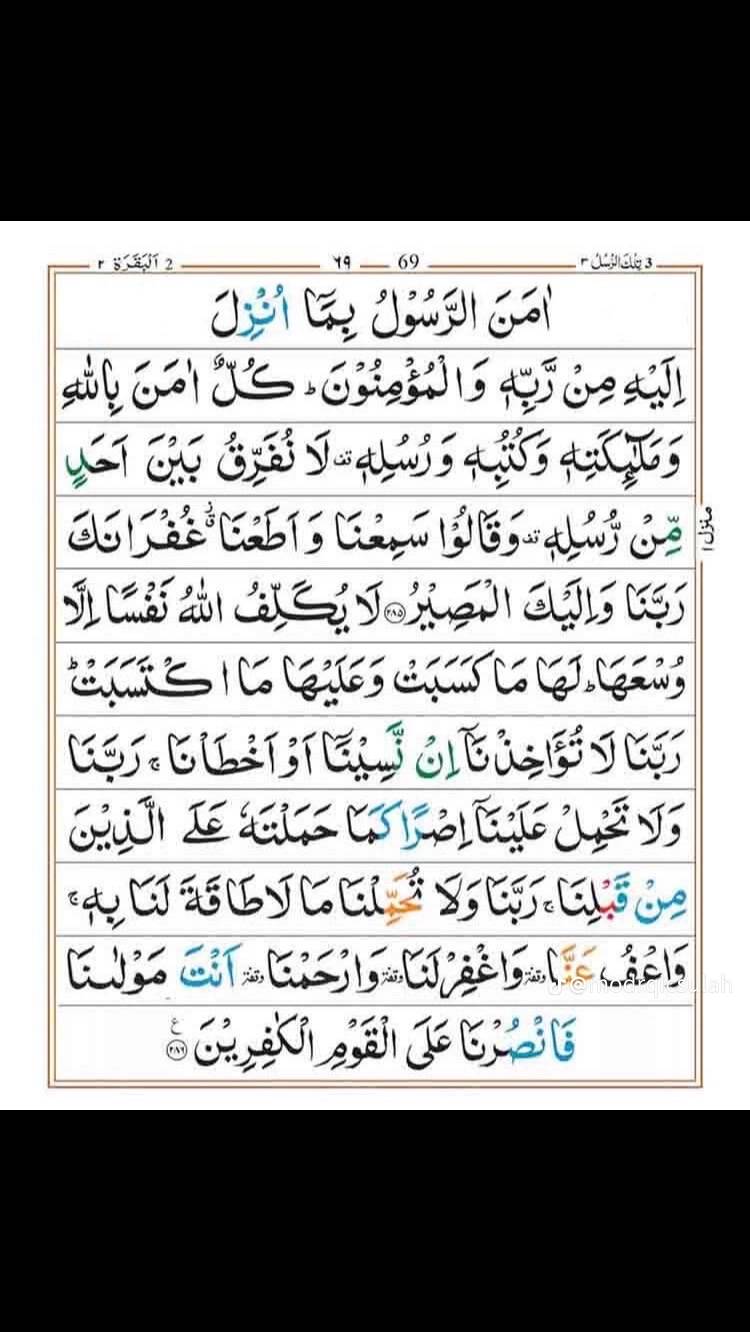 3 تِلْكَ الرُّسُلُ ٣ 69 ٦٩ 2 اَلْبَقَرَة ٢
اٰمَنَ الرَّسُوْلُ بِمَاۤ اُنْزِلَ
اِلَيْهِ مِنْ رَّبِّهٖ وَالْمُؤْمِنُوْنَ ؕ كُلٌّ اٰمَنَ بِاللّٰهِ
وَمَلٰٓئِكَتِهٖ وَكُتُبِهٖ وَرُسُلِهٖ قف لَا نُفَرِّقُ بَيْنَ اَحَدٍ
مِّنْ رُّسُلِهٖ قف وَقَالُوْا سَمِعْنَا وَاَطَعْنَا ؗ غُفْرَانَكَ
منزل ١
رَبَّنَا وَاِلَيْكَ الْمَصِيْرُ ﴿٢٨٥﴾ لَا يُكَلِّفُ اللّٰهُ نَفْسًا اِلَّا
وُسْعَهَا ؕ لَهَا مَا كَسَبَتْ وَعَلَيْهَا مَا اكْتَسَبَتْ ؕ
رَبَّنَا لَا تُؤَاخِذْنَاۤ اِنْ نَّسِيْنَاۤ اَوْ اَخْطَاْنَا ۚ رَبَّنَا
وَلَا تَحْمِلْ عَلَيْنَاۤ اِصْرًا كَمَا حَمَلْتَهٗ عَلَى الَّذِيْنَ
مِنْ قَبْلِنَا ۚ رَبَّنَا وَلَا تُحَمِّلْنَا مَا لَا طَاقَةَ لَنَا بِهٖ ۚ
وَاعْفُ عَنَّا وقفة وَاغْفِرْ لَنَا وقفة وَارْحَمْنَا وقفة اَنْتَ مَوْلٰىنَا
فَانْصُرْنَا عَلَى الْقَوْمِ الْكٰفِرِيْنَ ﴿٢٨٦﴾ ع